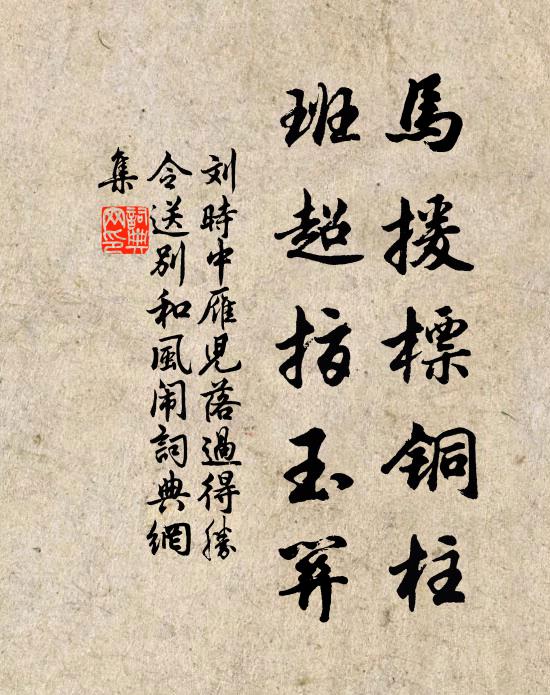 馬援標銅柱
班超指玉關
刘時中雁児落過得勝
令送別和風闹詞典網
集
詞典
网印